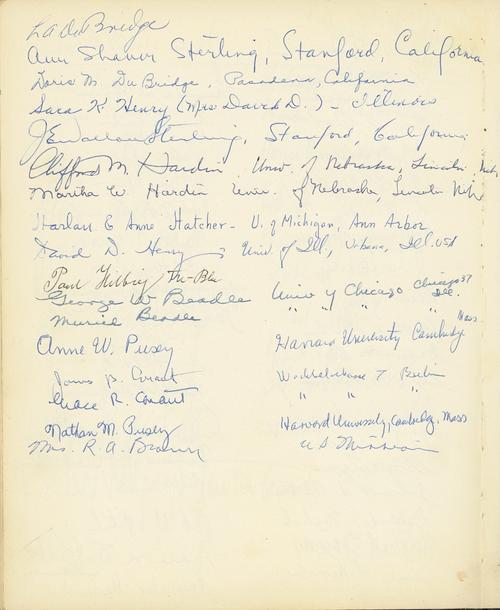 L A DuBridge
Ann Shaver Sterling, Stanford, California
Doris M DuBridge, Pasadena, California
Sara K Henry (Mrs David D.) - Illinois
J E Wallace Sterling, Stanford, California
Clifford M. Hardin, Univ. of Nebraska, Lincoln Neb.
Martha W Hardin Univ. of Nebraska, Lincoln Neb
Harlan & Anne Hatcher - U. of Michigan, Ann Arbor
David D. Henry, Univ. of Ill, Urbana, Ill. USA
Paul
George W Beadle Univ of Chicago Chicago 37 Ill.
Muriel Beadle " " "
Anne W. Pusey Harvard University Cambridge Mass
James B. Conant 7 Berlin
Grace R. Conant " "
Nathan M. Pusey Harvard University, Cambridge, Mass
Mrs. R. A. U S Mission